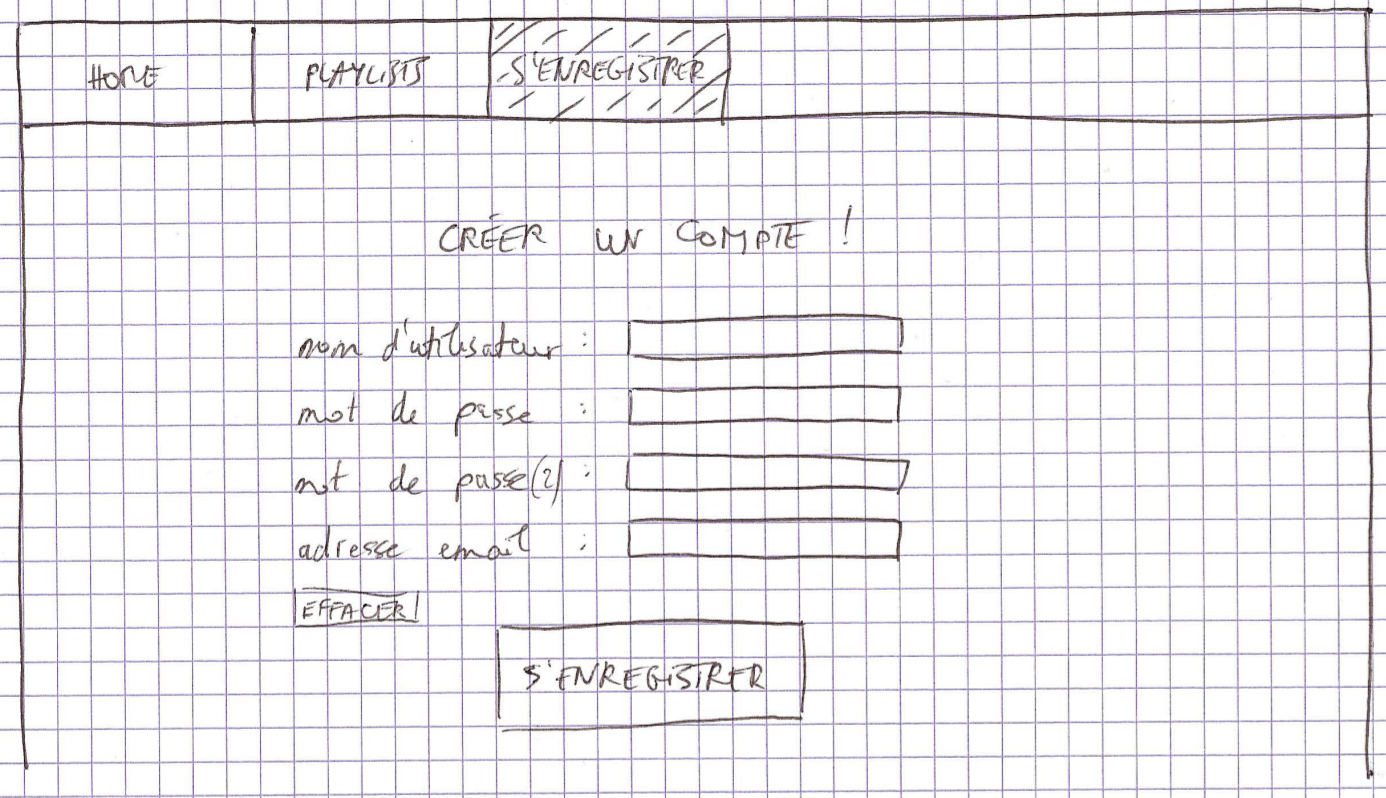 HOME PLAYLISTS S'ENREGISTRER
CRÉER UN COMPTE !
nom d'utilisateur :
mot de passe :
mot de passe(2) :
adresse email :
EFFACER
S'ENREGISTRER